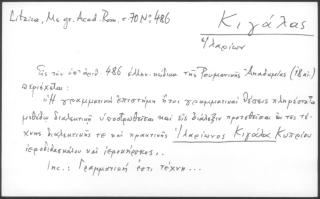 Litzica, Ms gr. Acad. Rom. σ 70 Nο 486
Κιγάλας
Ἱλαρίων
Εἰς τὸν ὑπ' ἀριθ. 486 ἑλλην. κώδικα τῆς Ρουμανικῆς Ἀκαδημίας
περιέχεται:
"Ἡ γραμματικὴ ἐπιστήμη ἤτοι γραμματικαὶ θέσεις πληρέσταται
μεθόδῳ διαλεκτικῇ καὶ εἰς διάλεξιν προτεθεῖσαι ἐκ τῆς τέ-
χνης διαλεκτικῆς τε καὶ πρακτικῆς Ἱλαρίωνος Κιγάλα Κυπρίου
ἱεροδιδασκάλου καὶ ἱεροκήρυκος..
Inc.: Γραμματική ἐστι τέχνη...